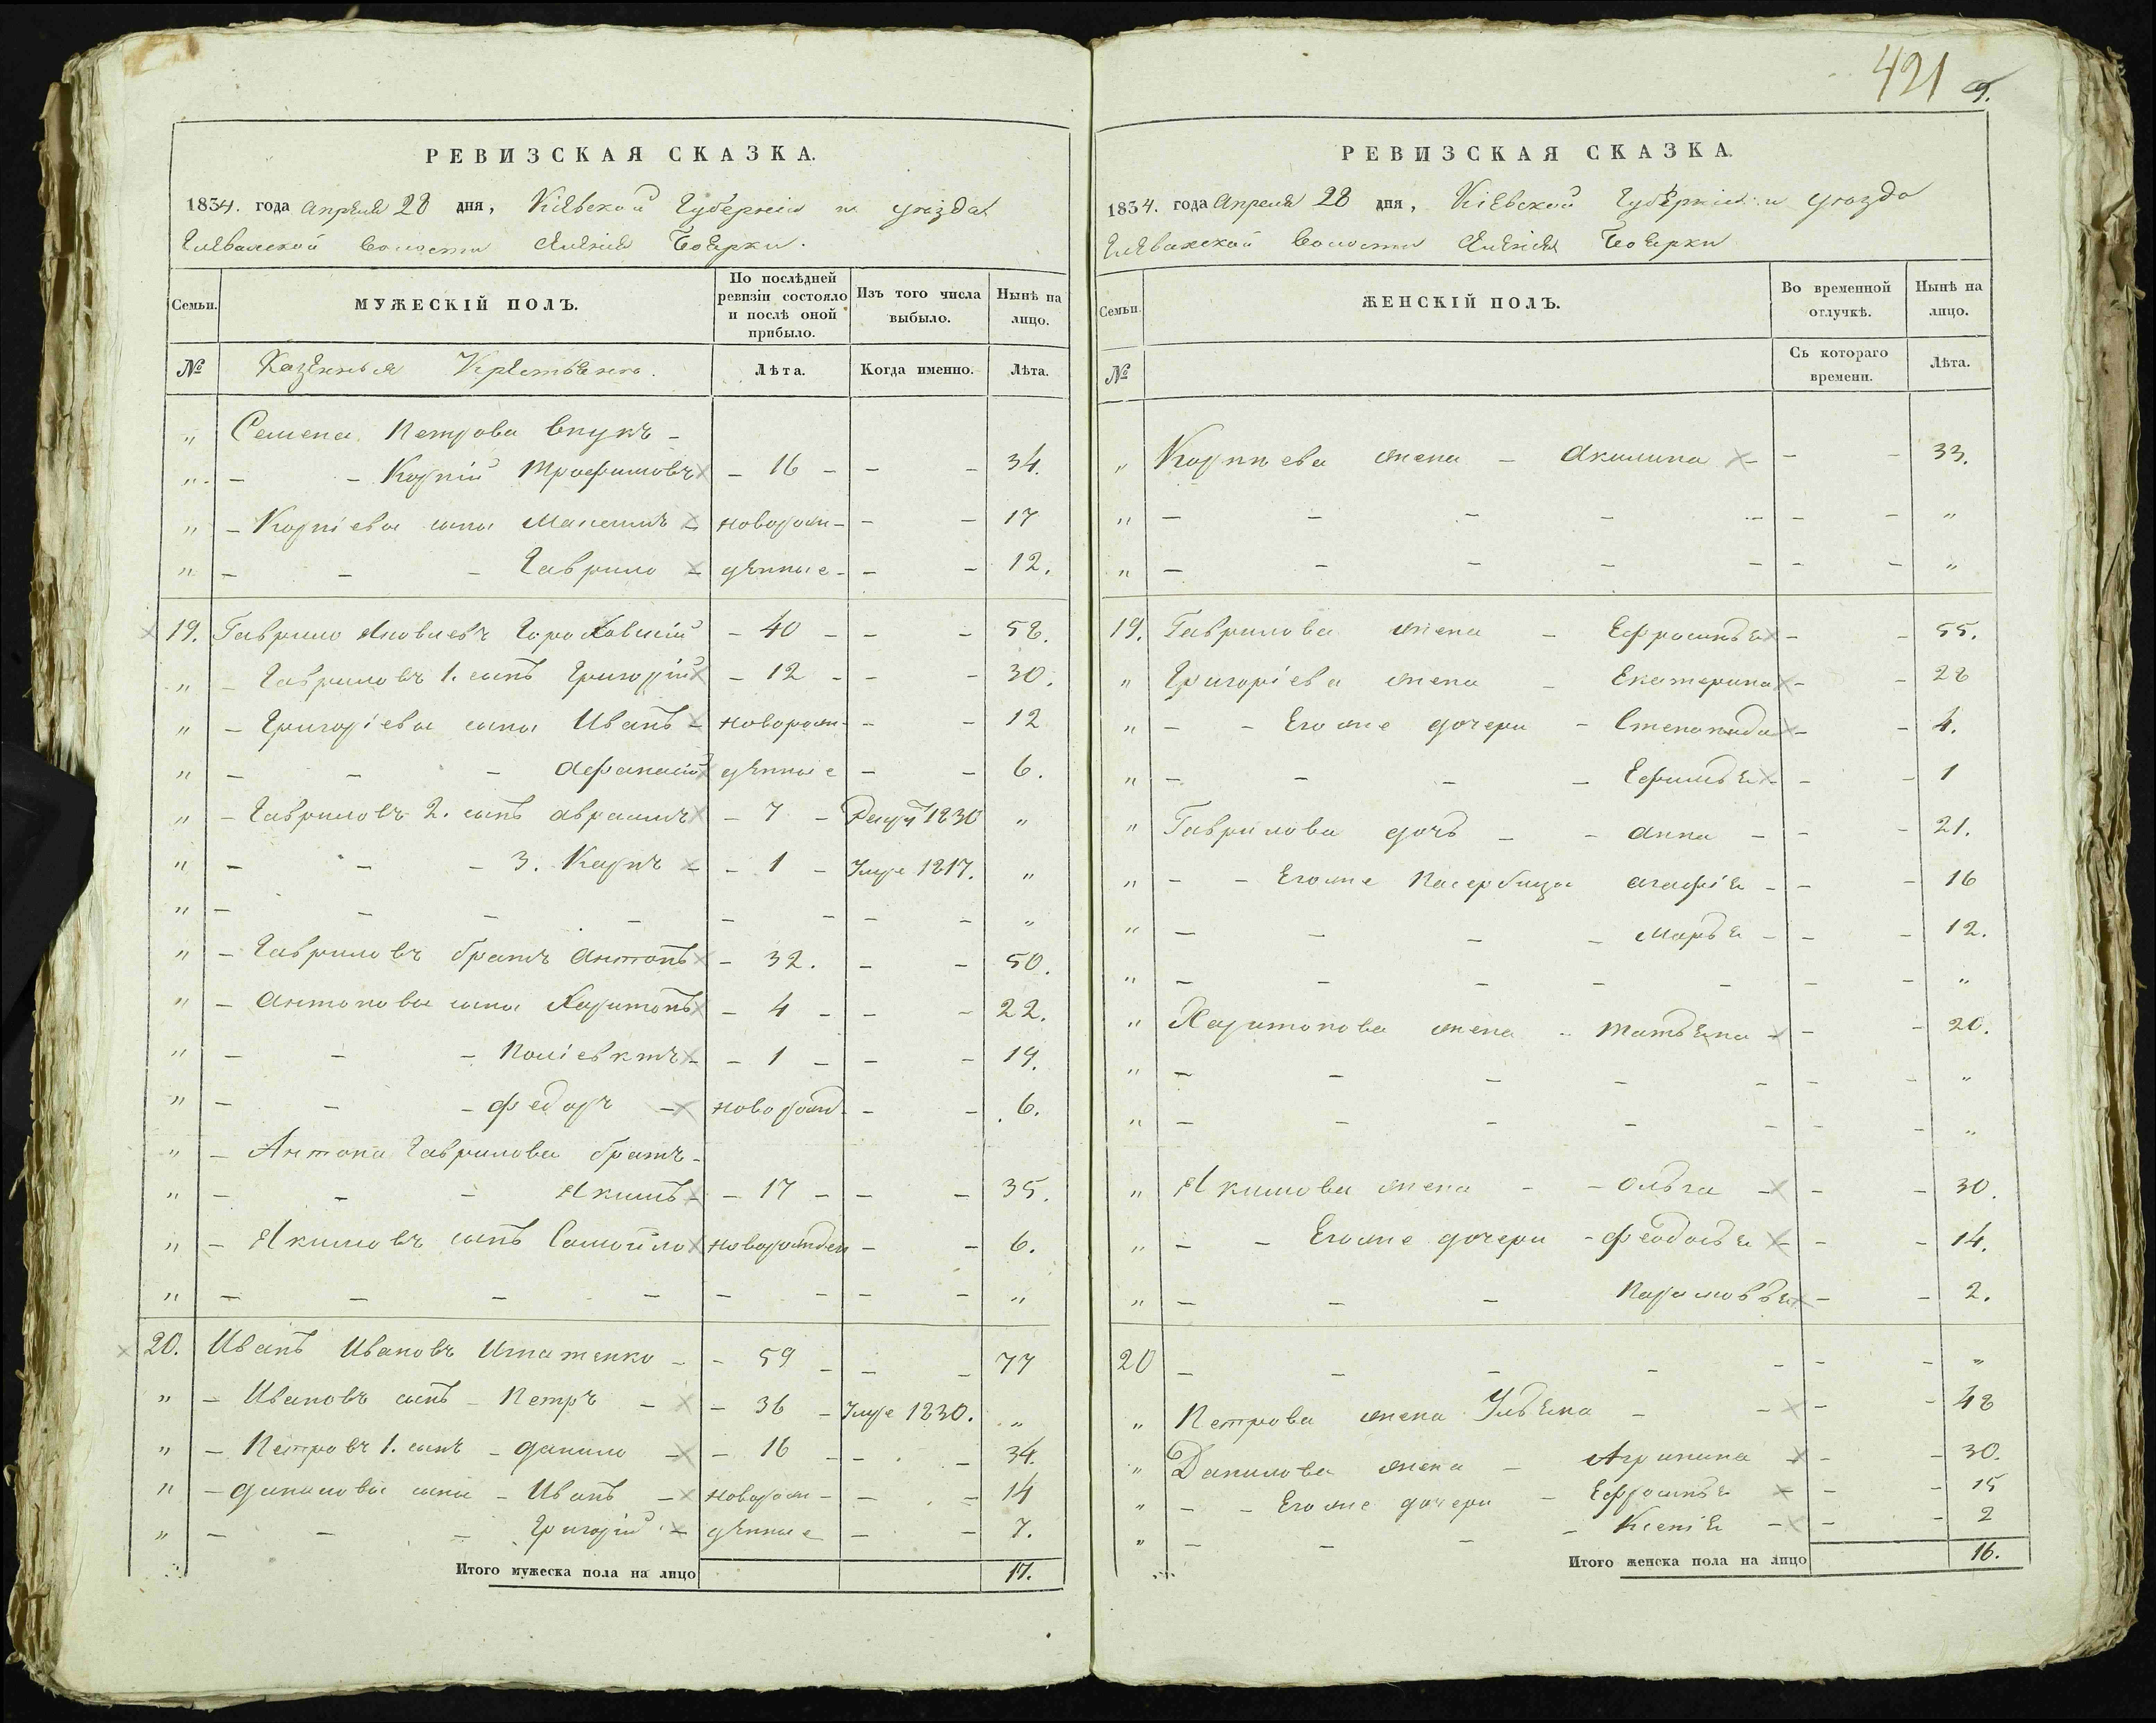 421 9.
РЕВИЗСКАЯ СКАЗКА.
1834. года Апреля 28 дня, Кіевской Губерніи и уезда
волости Боярки.
Семьи. МУЖЕСКІЙ ПОЛЪ. По послѣдней ревизіи состояло и послѣ оной прибыло. Изъ того числа выбыло. Нынѣ на лицо.
№ Казенныя Крестьяне. Лѣта. Когда именно. Лѣта.
" Семена Петрова внукъ -
" - - Корній Трофимовъ - 16 - - - 34.
" - Корніевы сыны Максимъ - новорож- - - 17
" - - - Гаврило - денные - - - 12.
19. Гаврило Яковлевъ - 40 - - - 58.
" - Гавриловъ 1. сынъ Григорій - 12 - - - 30.
" - Григоріевы сыны Иванъ - новорож- - - 12
" - - - Афанасій денные - - 6.
" - Гавриловъ 2. сынъ Авраамъ - 7 - Рекрут 1830 "
" - - - 3. Карпъ - - 1 - Умре 1817. "
" - - - - - - - - "
" - Гавриловъ братъ Антонъ - 32. - - 50.
" - Антоновы сыны Харитонъ - 4 - - - 22.
" - - - Поліевктъ - - 1 - - - 19.
" - - - Федоръ - новорожд- - - 6.
" - Антона Гаврилова братъ -
" - - - Якимъ - - 17 - - - 35.
" - Якимовъ сынъ Самойло новорожден - - 6.
" - - - - - - - - "
20. Иванъ Ивановъ Игнатенко - - 59 - - - 77
" - Ивановъ сынъ - Петръ - - 36 - Умре 1830. "
" - Петровъ 1. сынъ - Данило - - 16 - - - 34.
" - Даниловы сыны - Иванъ - новорож- - - 14
" - - - Григорій - денные - - 7.
Итого мужеска пола на лицо 17.
РЕВИЗСКАЯ СКАЗКА.
1834. года Апреля 28 дня, Кіевской Губерніи и уезда
волости Боярки
Семьи. ЖЕНСКІЙ ПОЛЪ. Во временной отлучкѣ. Нынѣ на лицо.
№ Съ котораго времени. Лѣта.
" Корніева жена - Акилина - - - 33.
" - - - - - - - "
" - - - - - - - "
19. Гаврилова жена - Ефросинья - - 55.
" Григоріева жена - Екатерина - - 28
" - - Его же дочери - Степанида - - 4.
" - - - - Ефимья - - - 1
" Гаврилова дочь - - Анна - - - 21.
" - - Его же пасербицы Агафія - - - 16
" - - - - Марья - - - 12.
" - - - - - - - "
" Харитонова жена - Татьяна - - - 20.
" - - - - - - - "
" - - - - - - - "
" Якимова жена - - Ольга - - - 30.
" - - Его же дочери - Феодосья - - - 14.
" - - - - - 2.
20 - - - - - - "
" Петрова жена Ульяна - - - 48
" Данилова жена - Агрипина - - - 30.
" - - Его же дочери - Ефросинья - - - 15
" - - - - Ксенія - - - 2
Итого женска пола на лицо 16.